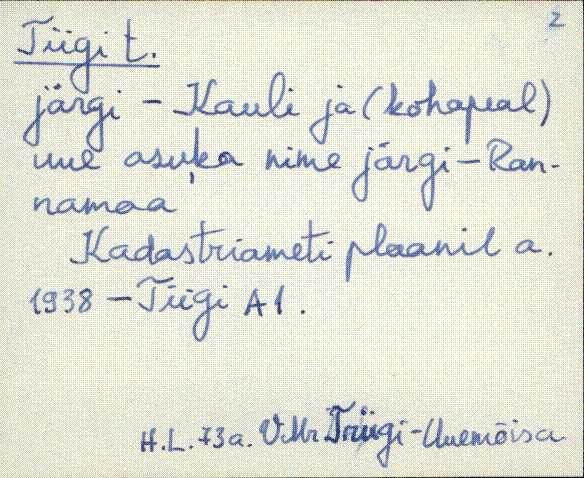 2
Tiigi t.
järgi – Kauli ja (kohapeal)
uue asuka nime järgi – Ran-
namaa
Kadastriameti plaanil a.
1938 – Tiigi A1.
H.L. 73a. V.Mr. Triigi-Uuemõisa